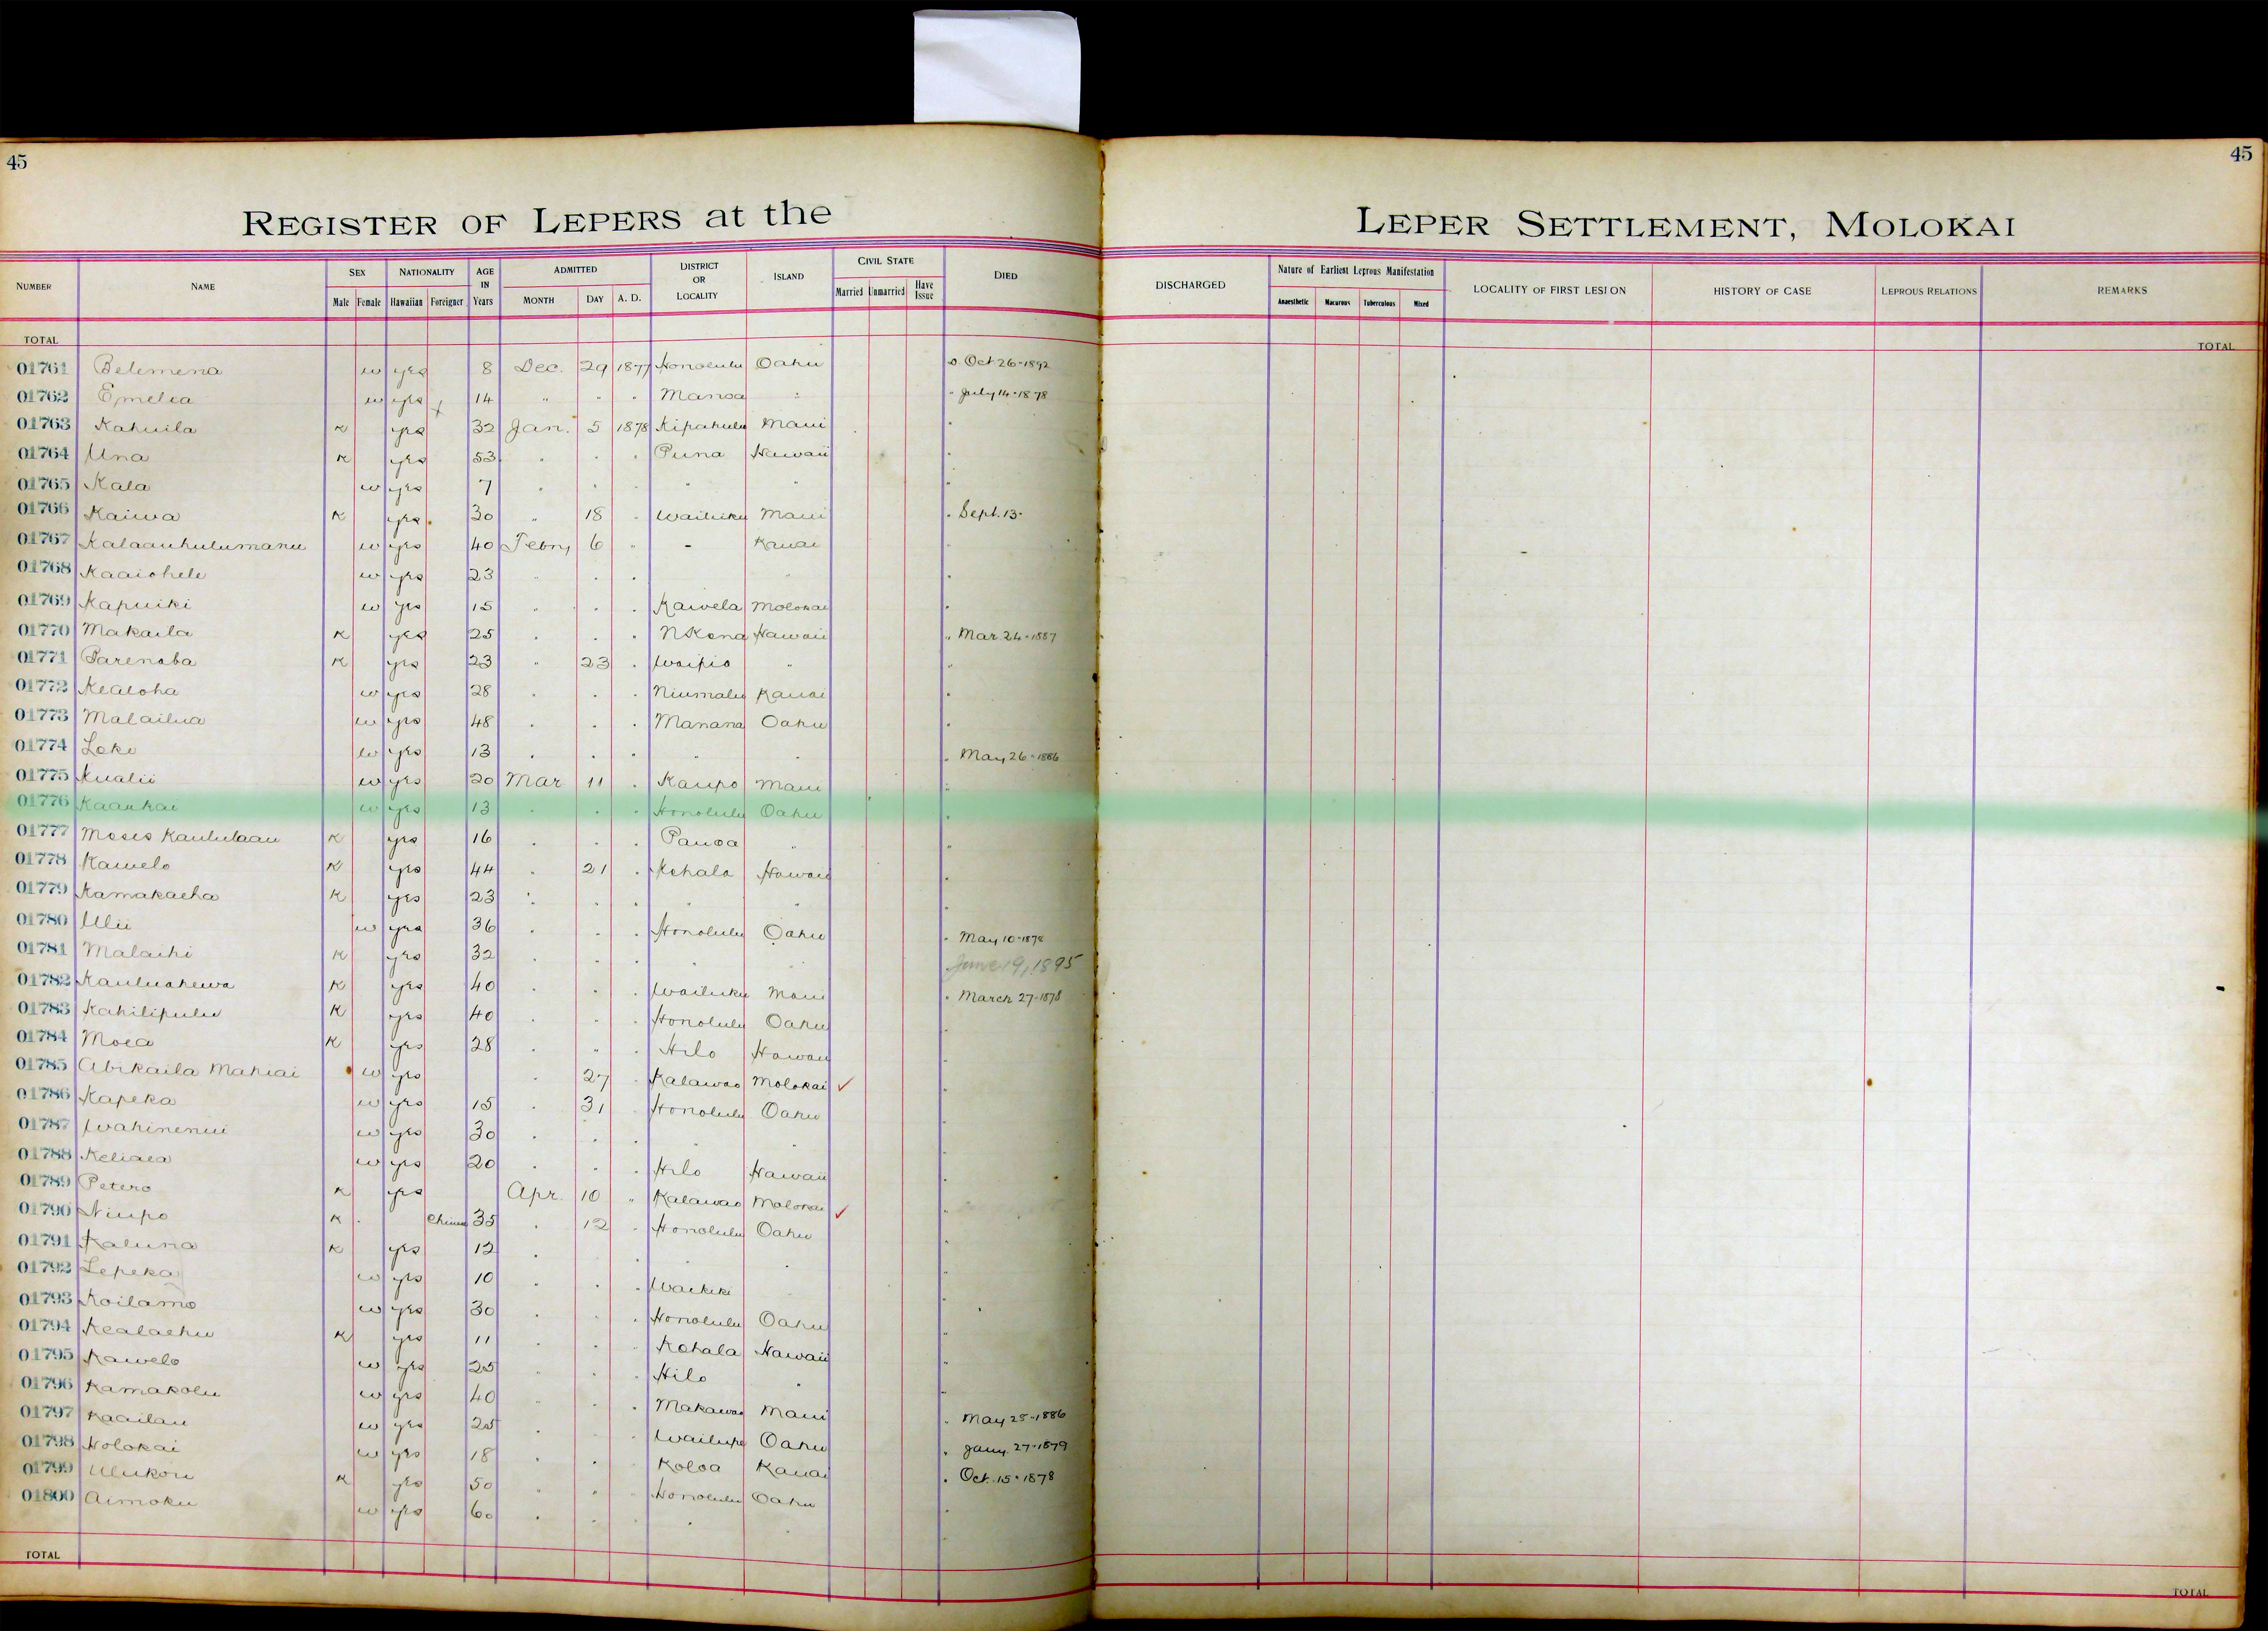 45
45
REGISTER OF LEPERS at the LEPER SETTLEMENT, MOLOKAI
NUMBER NAME SEX NATIONALITY AGE IN Years ADMITTED DISTRICT OR LOCALITY ISLAND CIVIL STATE DIED DISCHARGED Nature of Earliest Leprous Manifestation LOCALITY OF FIRST LESION HISTORY OF CASE LEPROUS RELATIONS REMARKS
Male Female Hawaiian Foreigner MONTH DAY A. D. Married Unmarried Have Issue Anaesthetic Macurous Tuberculous Mixed
TOTAL TOTAL
01761 Belemena w yes 8 Dec. 29 1877 Honolulu Oahu D. Oct 26-1892
01762 Emelia w yes 14 " " " Manoa " " July 14-1878
01763 Kahuila K yes 32 Jan. 5 1878 Kipahulu Maui "
01764 Una K yes 53 " " " Puna Hawaii "
01765 Kala w yes 7 " " " " " "
01766 Kaiwa K yes 30 " 18 " Wailuku Maui " Sept. 13-
01767 Kalaauhulumanu w yes 40 Febry 6 " - Kauai "
01768 Kaaiohele w yes 23 " " " " "
01769 Kapuiki w yes 15 " " " Kawela Molokai "
01770 Makaila K yes 25 " " " N Kona Hawaii " Mar 24-1887
01771 Parenaba K yes 23 " 23 " Waipio " "
01772 Kealoha w yes 28 " " " Niumalu Kauai "
01773 Malailua w yes 48 " " " Manana Oahu "
01774 Loke w yes 13 " " " " " " May 26-1886
01775 Kualii w yes 20 Mar 11 " Kaupo Maui "
01776 Kaaukai w yes 13 " " " Honolulu Oahu "
01777 Moses Kaululaau K yes 16 " " " Pauoa " "
01778 Kawelo K yes 44 " 21 " Kohala Hawaii "
01779 Kamakaeha K yes 23 " " " " " "
01780 Ulii w yes 36 " " " Honolulu Oahu " May 10-1878
01781 Malaihi K yes 32 " " " " " June 19, 1895
01782 Kauluahewa K yes 40 " " " Wailuku Maui " March 27-1878
01783 Kahilipulu K yes 40 " " " Honolulu Oahu "
01784 Moea K yes 28 " " " Hilo Hawaii "
01785 Abikaila Mahiai w yes " 27 " Kalawao Molokai ✓ "
01786 Kapeka w yes 15 " 31 " Honolulu Oahu "
01787 Wahinenui w yes 30 " " " " " "
01788 Keliaea w yes 20 " " " Hilo Hawaii "
01789 Petero K yes Apr. 10 " Kalawao Molokai ✓ "
01790 Niupo K Chinese 35 " 12 " Honolulu Oahu "
01791 Kaluna K yes 12 " " " " " "
01792 Lepeka w yes 10 " " " Waikiki " "
01793 Koilamo w yes 30 " " " Honolulu Oahu "
01794 Kealaehu K yes 11 " " " Kohala Hawaii "
01795 Kawelo w yes 25 " " " Hilo " "
01796 Kamakolu w yes 40 " " " Makawao Maui " May 25-1886
01797 Kaailau w yes 25 " " " Wailupe Oahu " Jany. 27-1879
01798 Holokai w yes 18 " " " Koloa Kauai " Oct. 15-1878
01799 Ulukou K yes 50 " " " Honolulu Oahu "
01800 Aimoku w yes 60 " " " " " "
TOTAL TOTAL